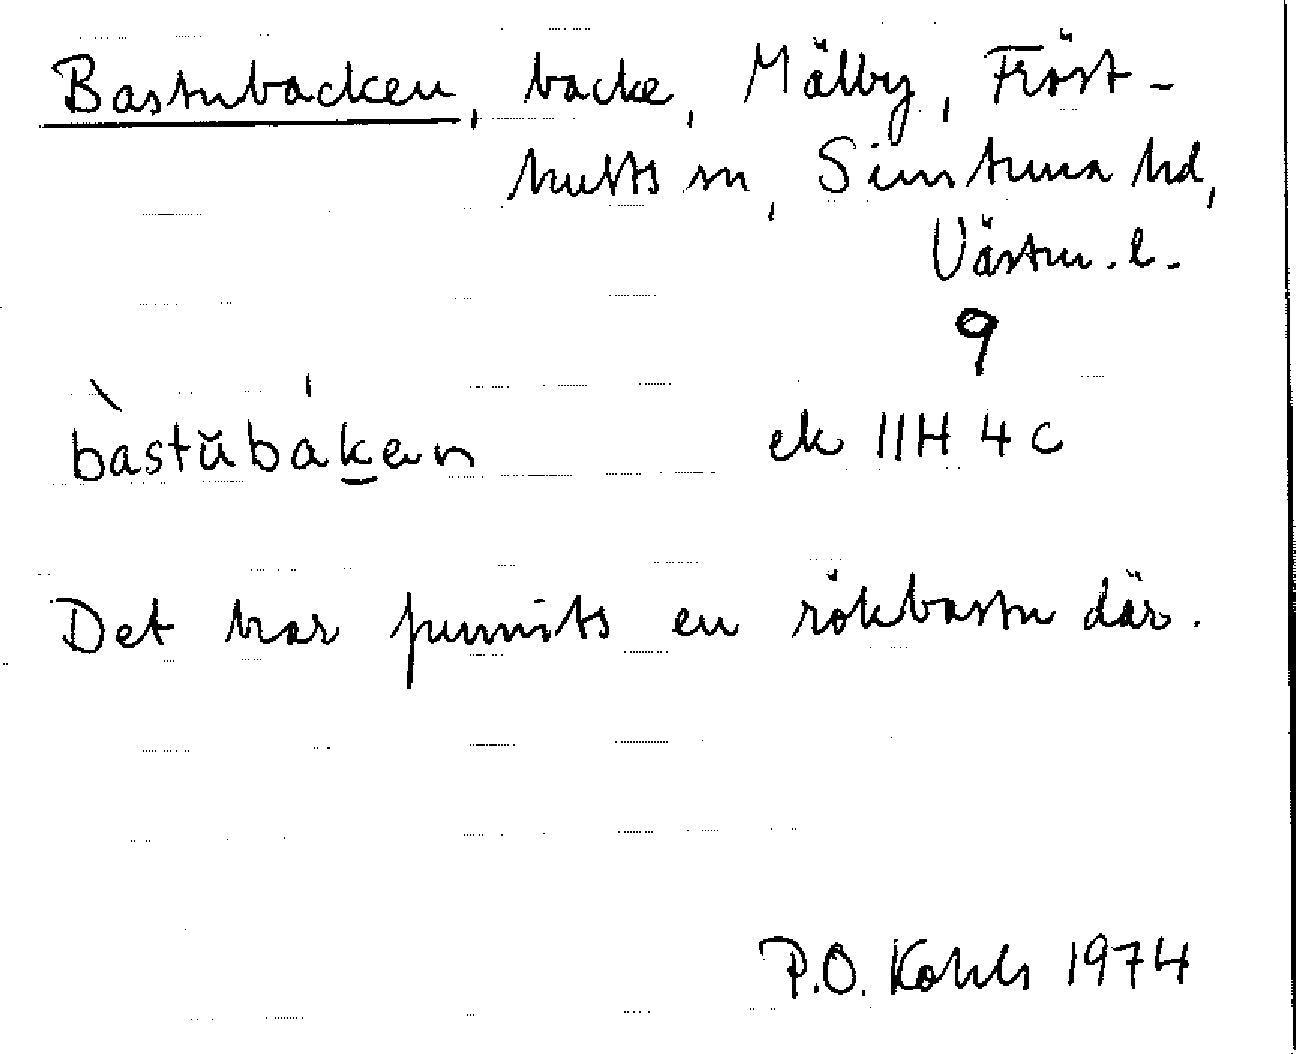 Bastubacken, backe, Mälby, Fröst-
hults sn, Simtuna hd,
Västm. l.
9
bàstŭbáken ek 11H 4 c
Det har funnits en rökbastu där.
P.O. Kohls 1974